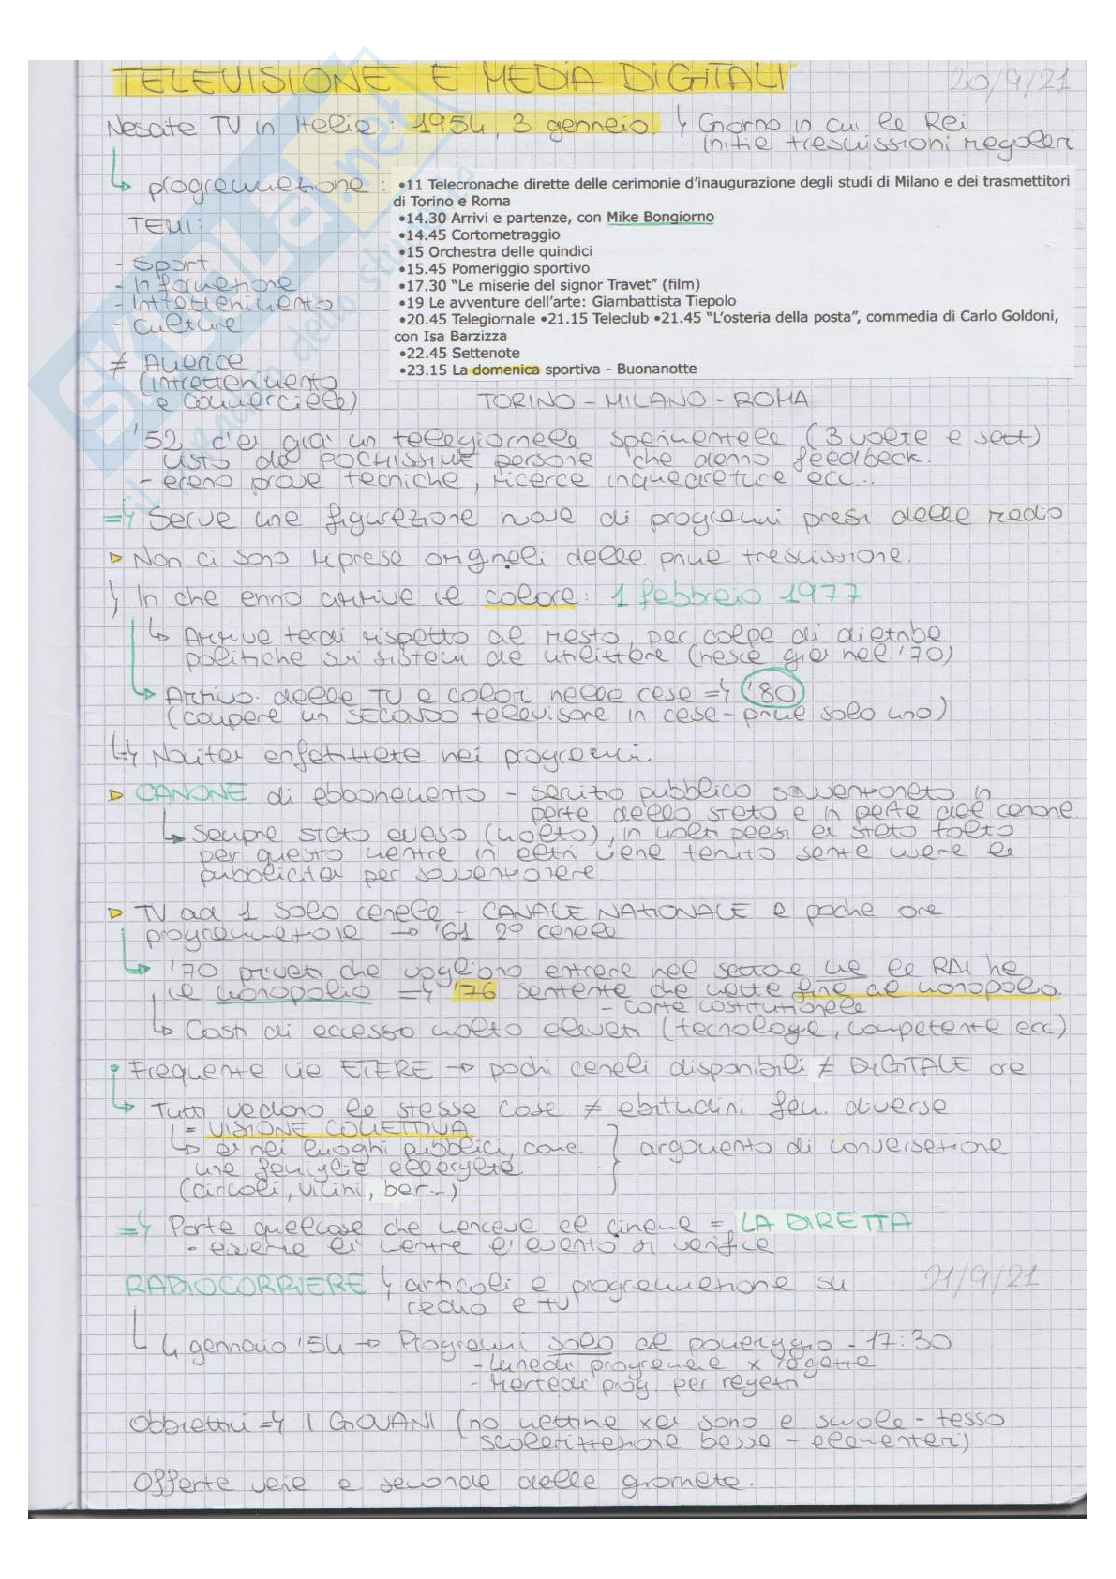 TELEVISIONE E MEDIA DIGITALI 20/9/21
Nascita TV in Italia: 1954, 3 gennaio ↳ Giorno in cui la Rai
inizia trasmissioni regolari
↳ programmazione:
•11 Telecronache dirette delle cerimonie d'inaugurazione degli studi di Milano e dei trasmettitori
di Torino e Roma
•14.30 Arrivi e partenze, con Mike Bongiorno
•14.45 Cortometraggio
•15 Orchestra delle quindici
•15.45 Pomeriggio sportivo
•17.30 "Le miserie del signor Travet" (film)
•19 Le avventure dell'arte: Giambattista Tiepolo
•20.45 Telegiornale •21.15 Teleclub •21.45 "L'osteria della posta", commedia di Carlo Goldoni,
con Isa Barzizza
•22.45 Settenote
•23.15 La domenica sportiva - Buonanotte
TEMI:
- Sport
- Informazione
- Intrattenimento
- Cultura
≠ America
(intrattenimento
e commerciale)
TORINO - MILANO - ROMA
'52 c'è già un telegiornale sperimentale (3 volte a sett)
visto da POCHISSIME persone che danno feedback.
- erano prove tecniche, ricerca inquadrature ecc..
=> Serve una figurazione nuova di programmi presi dalla radio
▷ Non ci sono riprese originali della prima trasmissione.
↳ In che anno arriva il colore: 1 febbraio 1977
↳ Arriva tardi rispetto al resto, per colpa di diatribe
politiche sui sistemi da utilizzare (nasce già nel '70)
↳ Arrivo delle TV a color nelle case => '80
(compare un SECONDO televisore in casa - prima solo uno)
↳ Novità enfatizzata nei programmi.
▷ CANONE di abbonamento - servizio pubblico sovvenzionato in
parte dallo stato e in parte dal canone.
↳ Sempre stato evaso (molto), in molti paesi è stato tolto
per questo mentre in altri viene tenuto senza usare la
pubblicità per sovvenzionare
▷ TV ad 1 solo canale - CANALE NAZIONALE e poche ore
programmazione → '61 2° canale
↳ '70 privati che vogliono entrare nel settore ma la RAI ha
il monopolio => '76 sentenza che mette fine al monopolio.
- Corte costituzionale
↳ Costi di accesso molto elevati (tecnologie, competente ecc)
• Frequenze via ETERE → pochi canali disponibili ≠ DIGITALE ora
↳ Tutti vedono le stesse cose ≠ abitudini fam. diverse
= VISIONE COLLETTIVA
↳ è nei luoghi pubblici, come
una famiglia allargata
(circoli, vicini, bar..)
} argomento di conversazione
=> Porta qualcosa che mancava al cinema = LA DIRETTA
- essere lì mentre l'evento si verifica
RADIOCORRIERE ↳ articoli e programmazione su 21/9/21
radio e tv
↳ 4 gennaio '54 → Programmi solo al pomeriggio - 17:30
- Lunedì programmi x ragazze
- Martedì prog. per ragazzi
Obbiettivi => I GIOVANI (no mattina xé sono a scuola - tasso
scolarizzazione basso - elementari)
Offerte varia a seconda della giornata.